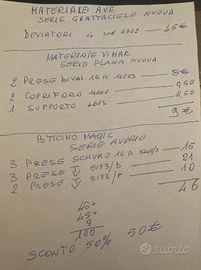 MATERIALE AVE
SERIE GRATTACIELO NUOVA
DEVIATORI 4 cod 0402 — 45€
MATERIALE VIMAR
SERIE PLANA NUOVA
2 PRESE BIVAL 16A 14203 8€
2 COPRIFORO 14041 0,50
1 SUPPORTO 14613 0,50
9€
BTICINO MAGIC
SERIE AVORIO
3 PRESE SCHUKO 16A 15
3 PRESE 5173/D 21
2 PRESE 5173/P 10
46
46+
45+
9
100
SCONTO 50% 50€
subito